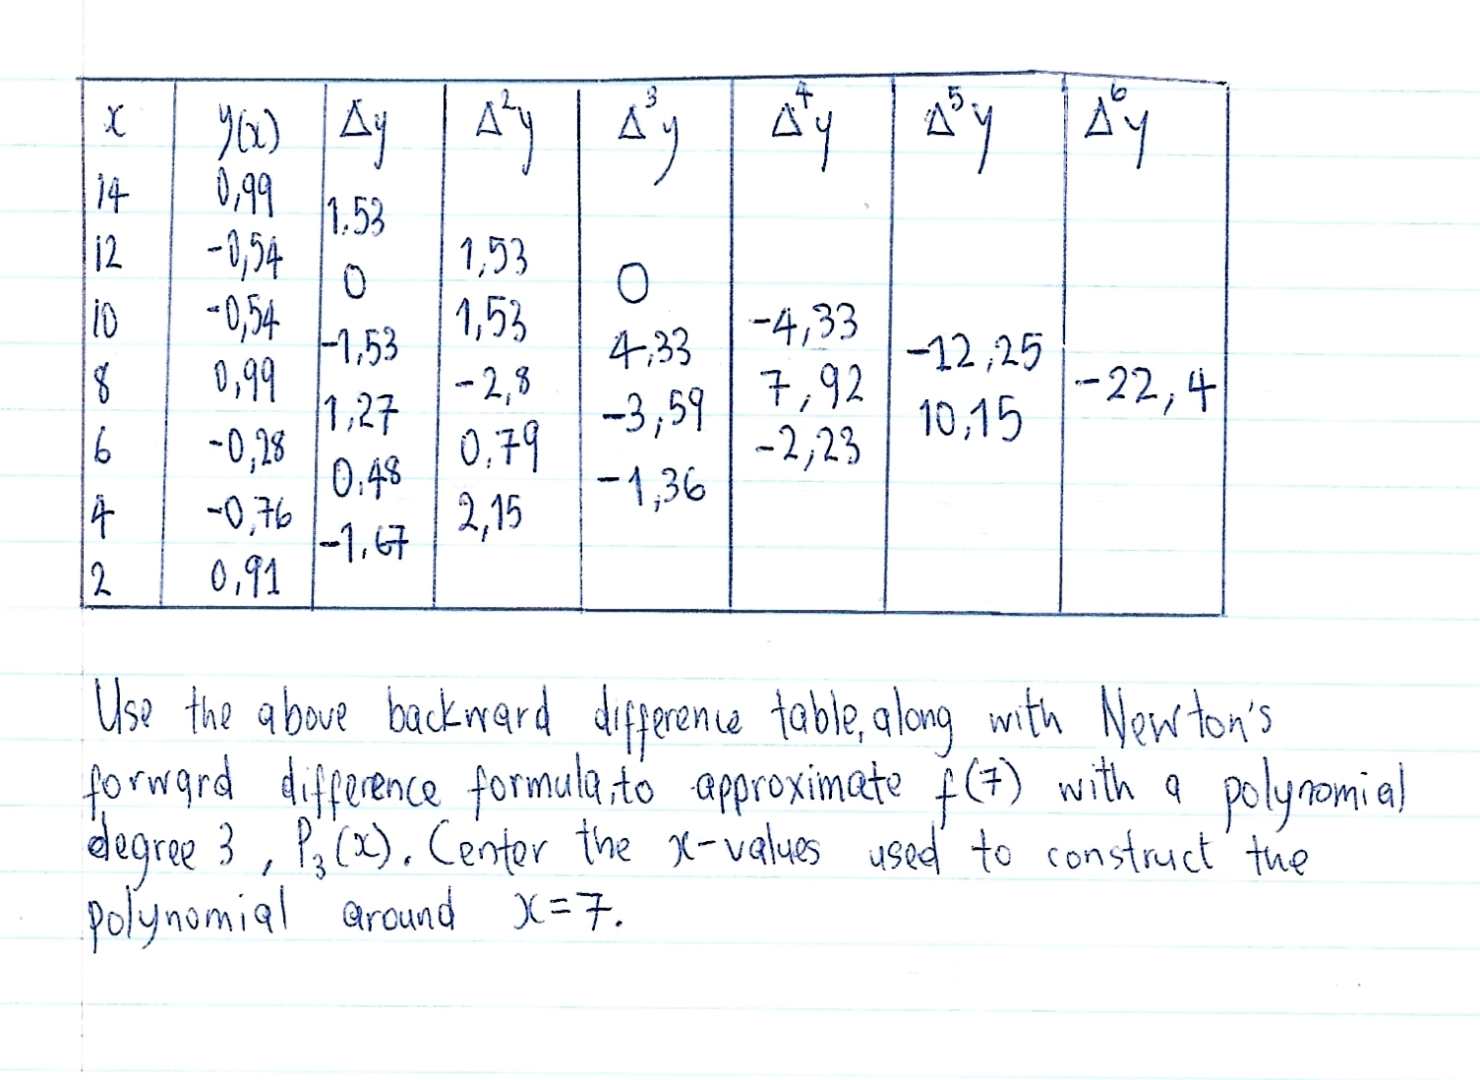 x y(x) Δy Δ²y Δ³y Δ⁴y Δ⁵y Δ⁶y
14 0,99
1.53
12 -0,54 1,53
0 0
10 -0,54 1,53 -4,33
-1,53 4,33 -12,25
8 0,99 -2,8 7,92 -22,4
1,27 -3,59 10,15
6 -0,28 0,79 -2,23
0,48 -1,36
4 -0,76 2,15
-1,67
2 0,91
Use the above backward difference table, along with Newton's
forward difference formula, to approximate f(7) with a polynomial
degree 3, P₃(x). Center the x-values used to construct the
polynomial around x=7.